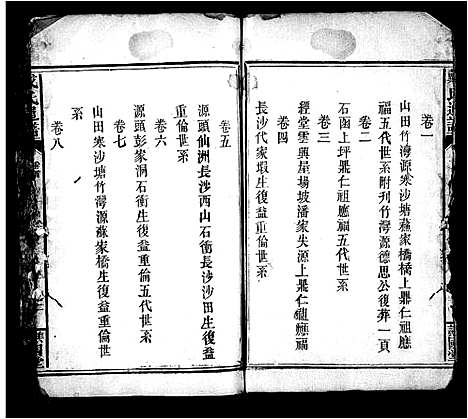 卷一
山田竹灣源寒沙塘蘇家橋橋上鼎仁祖應
福五代世系附刋竹灣源德思公復葬一頁
卷二
石函上坪鼎仁祖應福五代世系
卷三
經堂雲興屋塲坡潘家夾源上鼎仁祖應福
卷四
長沙代家塅生復益重倫世系
卷五
源頭仙洲長涉西山石衝長沙沙田生復益
重倫世系
卷六
源頭彭家洞石衝生復益重倫五代世系
卷七
山田寒沙塘竹灣源蘇家橋生復益重倫世
系
卷八
氏通譜